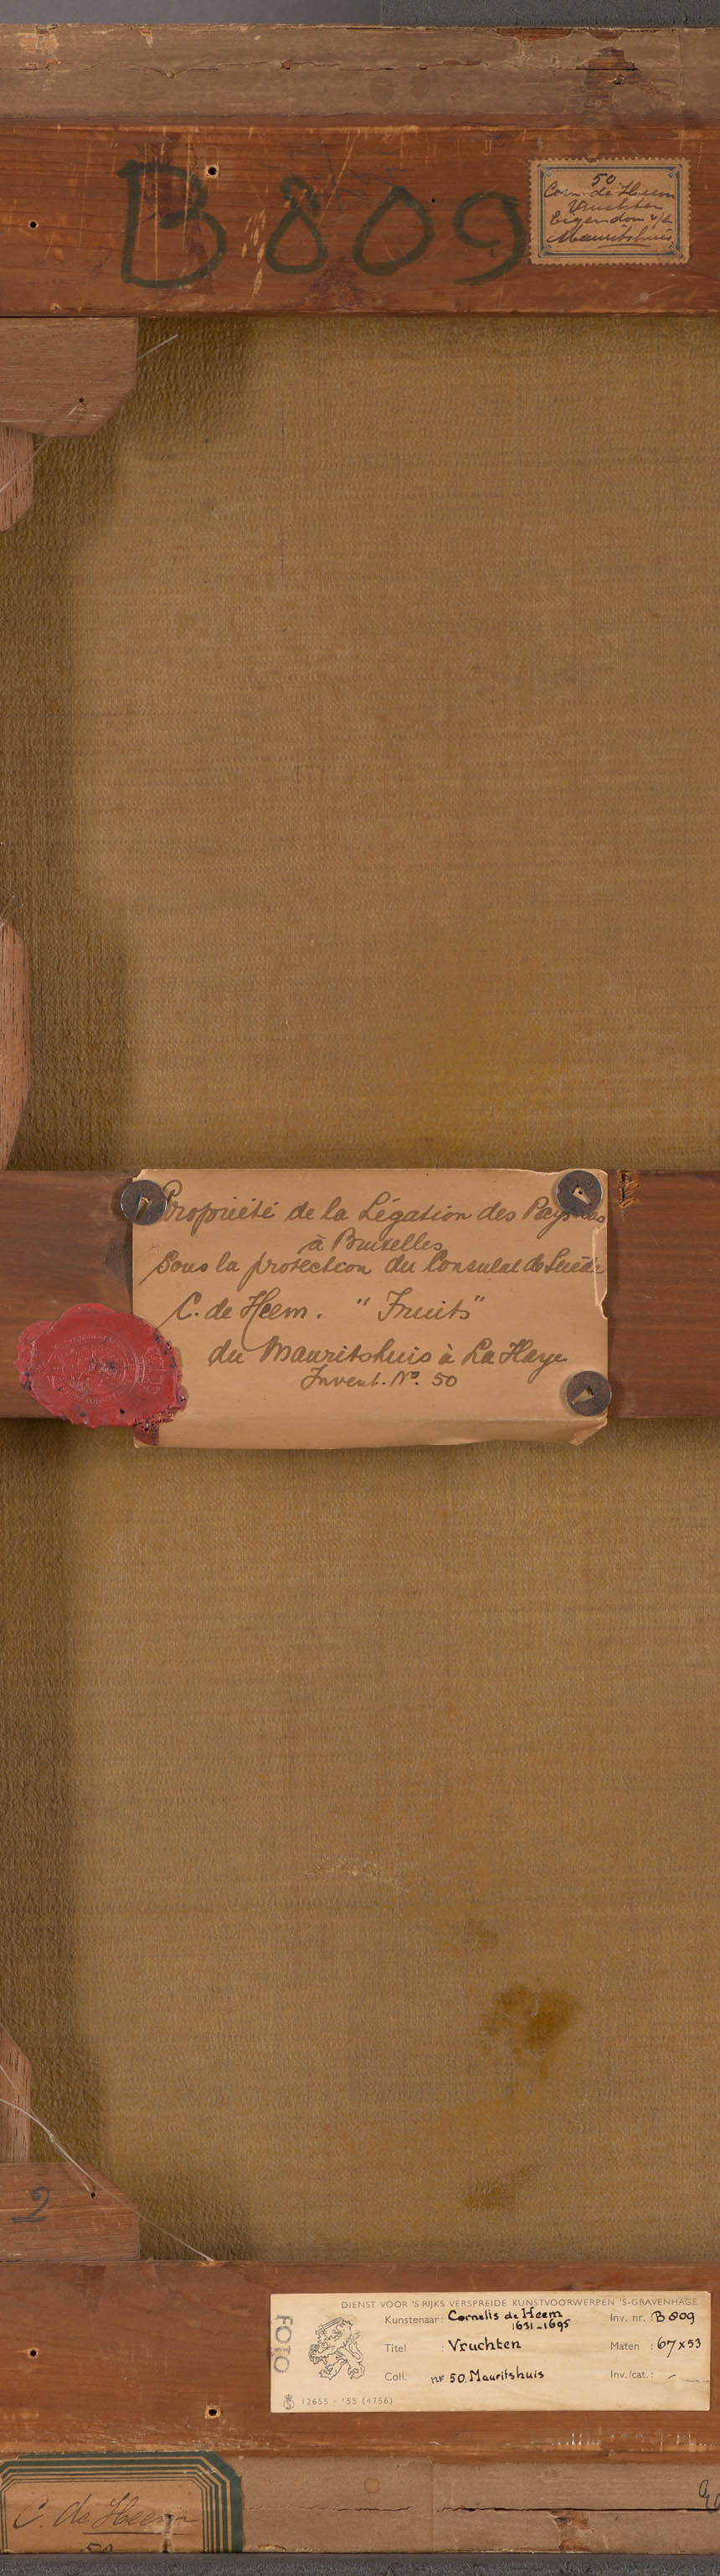 B 809
50
Corn. de Heem
Vruchten
Eigendom v/h
Mauritshuis
Propriété de la Légation des Pays-Bas
à Bruxelles
Sous la protection du Consulat de Suède
C. de Heem. "Fruits"
du Mauritshuis à La Haye
Invent. No. 50
2
DIENST VOOR 'S RIJKS VERSPREIDE KUNSTVOORWERPEN 'S-GRAVENHAGE
FOTO
Kunstenaar: Cornelis de Heem Inv. nr. B 809
1631-1695
Titel : Vruchten Maten : 67 x 53
Coll. nr 50. Mauritshuis Inv./cat.: -
12655 - '55 (4756)
C. de Heem
50